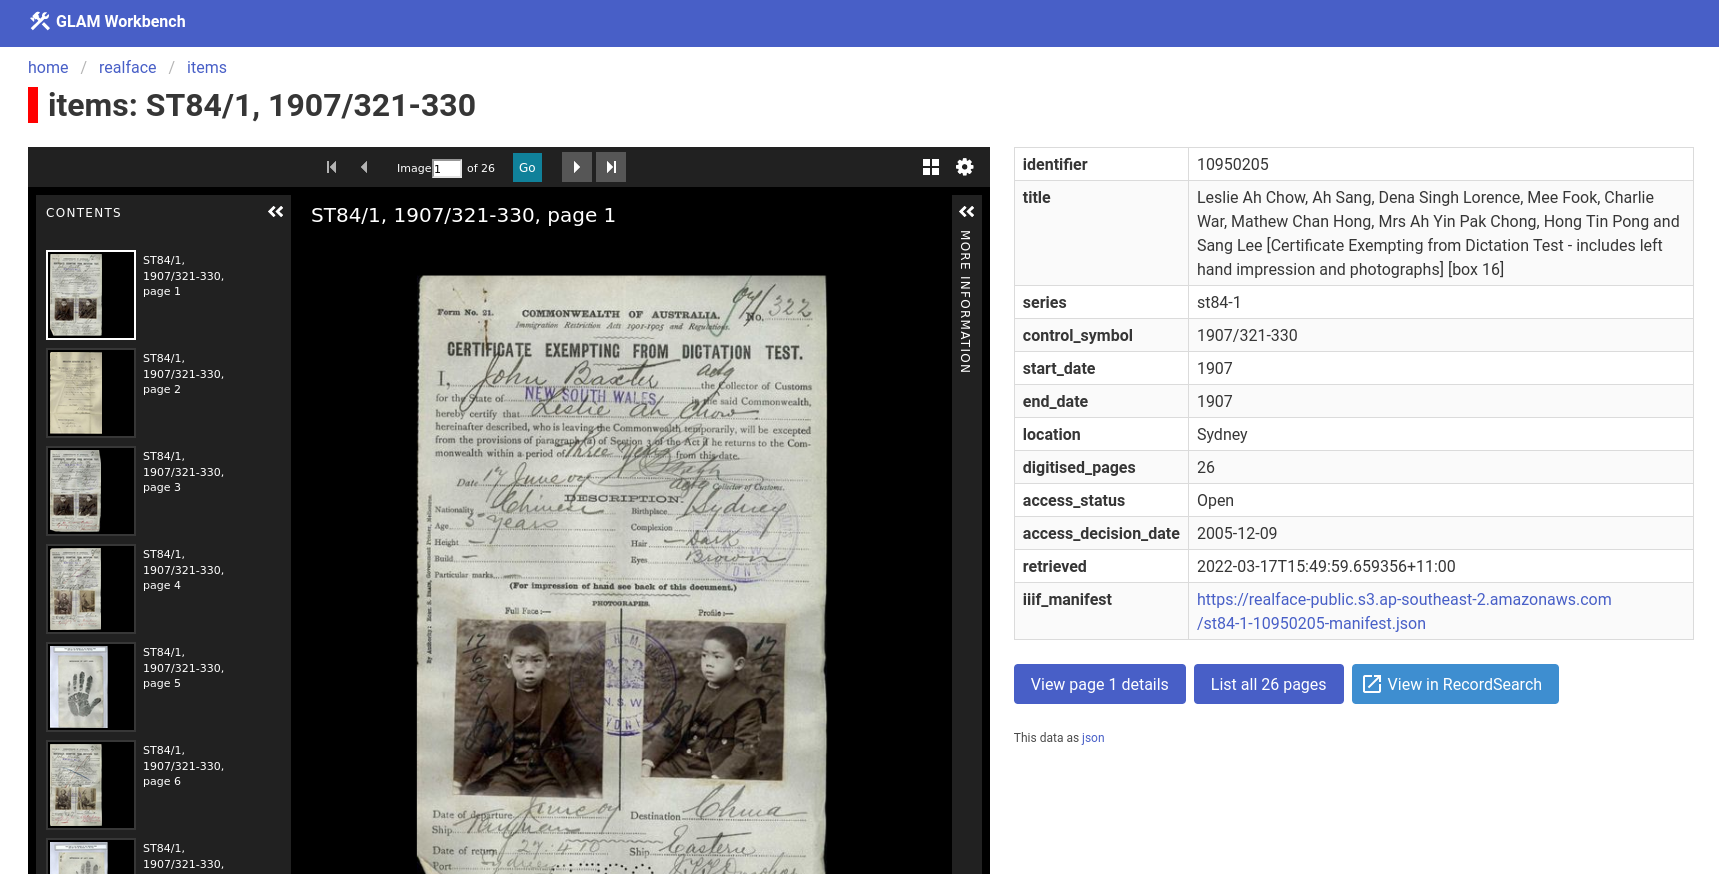 GLAM Workbench
home / realface / items
items: ST84/1, 1907/321-330
Image 1 of 26 Go
CONTENTS
ST84/1,
1907/321-330,
page 1
ST84/1,
1907/321-330,
page 2
ST84/1,
1907/321-330,
page 3
ST84/1,
1907/321-330,
page 4
ST84/1,
1907/321-330,
page 5
ST84/1,
1907/321-330,
page 6
ST84/1,
1907/321-330,
ST84/1, 1907/321-330, page 1
MORE INFORMATION
07/322
Form No. 21. COMMONWEALTH OF AUSTRALIA. No.
Immigration Restriction Acts 1901-1905 and Regulations.
CERTIFICATE EXEMPTING FROM DICTATION TEST.
I, John Baxter actg the Collector of Customs
for the State of NEW SOUTH WALES in the said Commonwealth,
hereby certify that Leslie Ah Chow
hereinafter described, who is leaving the Commonwealth temporarily, will be excepted
from the provisions of paragraph (a) of Section 3 of the Act if he returns to the Com-
monwealth within a period of Three years from this date.
Date 17 June 07 actg Collector of Customs.
DESCRIPTION.
Nationality Chinese Birthplace Sydney
Age 5 years Complexion
Height – Hair Dark
Build – Eyes Brown
Particular marks
(For impression of hand see back of this document.)
PHOTOGRAPHS.
Full Face :— Profile :—
N.S.W.
Date of departure June 07 Destination China
Ship
Date of return 27.4.10 Ship Eastern
Port
identifier 10950205
title Leslie Ah Chow, Ah Sang, Dena Singh Lorence, Mee Fook, Charlie
War, Mathew Chan Hong, Mrs Ah Yin Pak Chong, Hong Tin Pong and
Sang Lee [Certificate Exempting from Dictation Test - includes left
hand impression and photographs] [box 16]
series st84-1
control_symbol 1907/321-330
start_date 1907
end_date 1907
location Sydney
digitised_pages 26
access_status Open
access_decision_date 2005-12-09
retrieved 2022-03-17T15:49:59.659356+11:00
iiif_manifest https://realface-public.s3.ap-southeast-2.amazonaws.com
/st84-1-10950205-manifest.json
View page 1 details List all 26 pages View in RecordSearch
This data as json